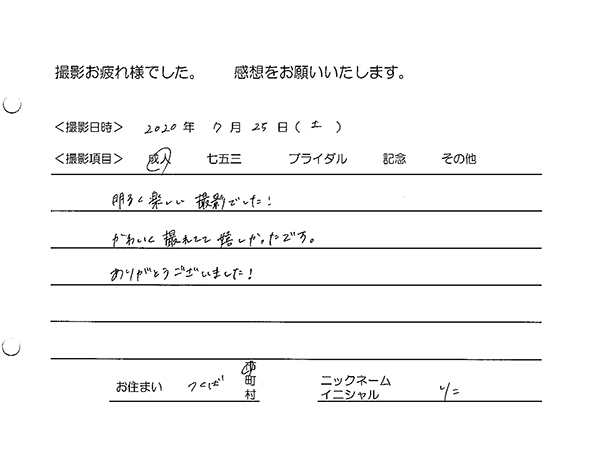 撮影お疲れ様でした。 感想をお願いいたします。
<撮影日時> 2020 年 7 月 25 日 ( 土 )
<撮影項目> 成人 七五三 ブライダル 記念 その他
明るく楽しい撮影でした!
かわいく撮れてて嬉しかったです。
ありがとうございました!
お住まい つくば 市 町 村
ニックネーム イニシャル りこ